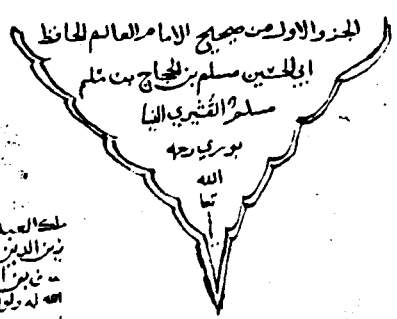 الجزو الاول من صحيح الامام العالم الحافظ
ابي الحسين مسلم بن الحجاج بن مسلم
مسلم القشيري النيسا
بوري رحمه
الله
تعا
ملك العبد
زين الدين
الله له ولوا